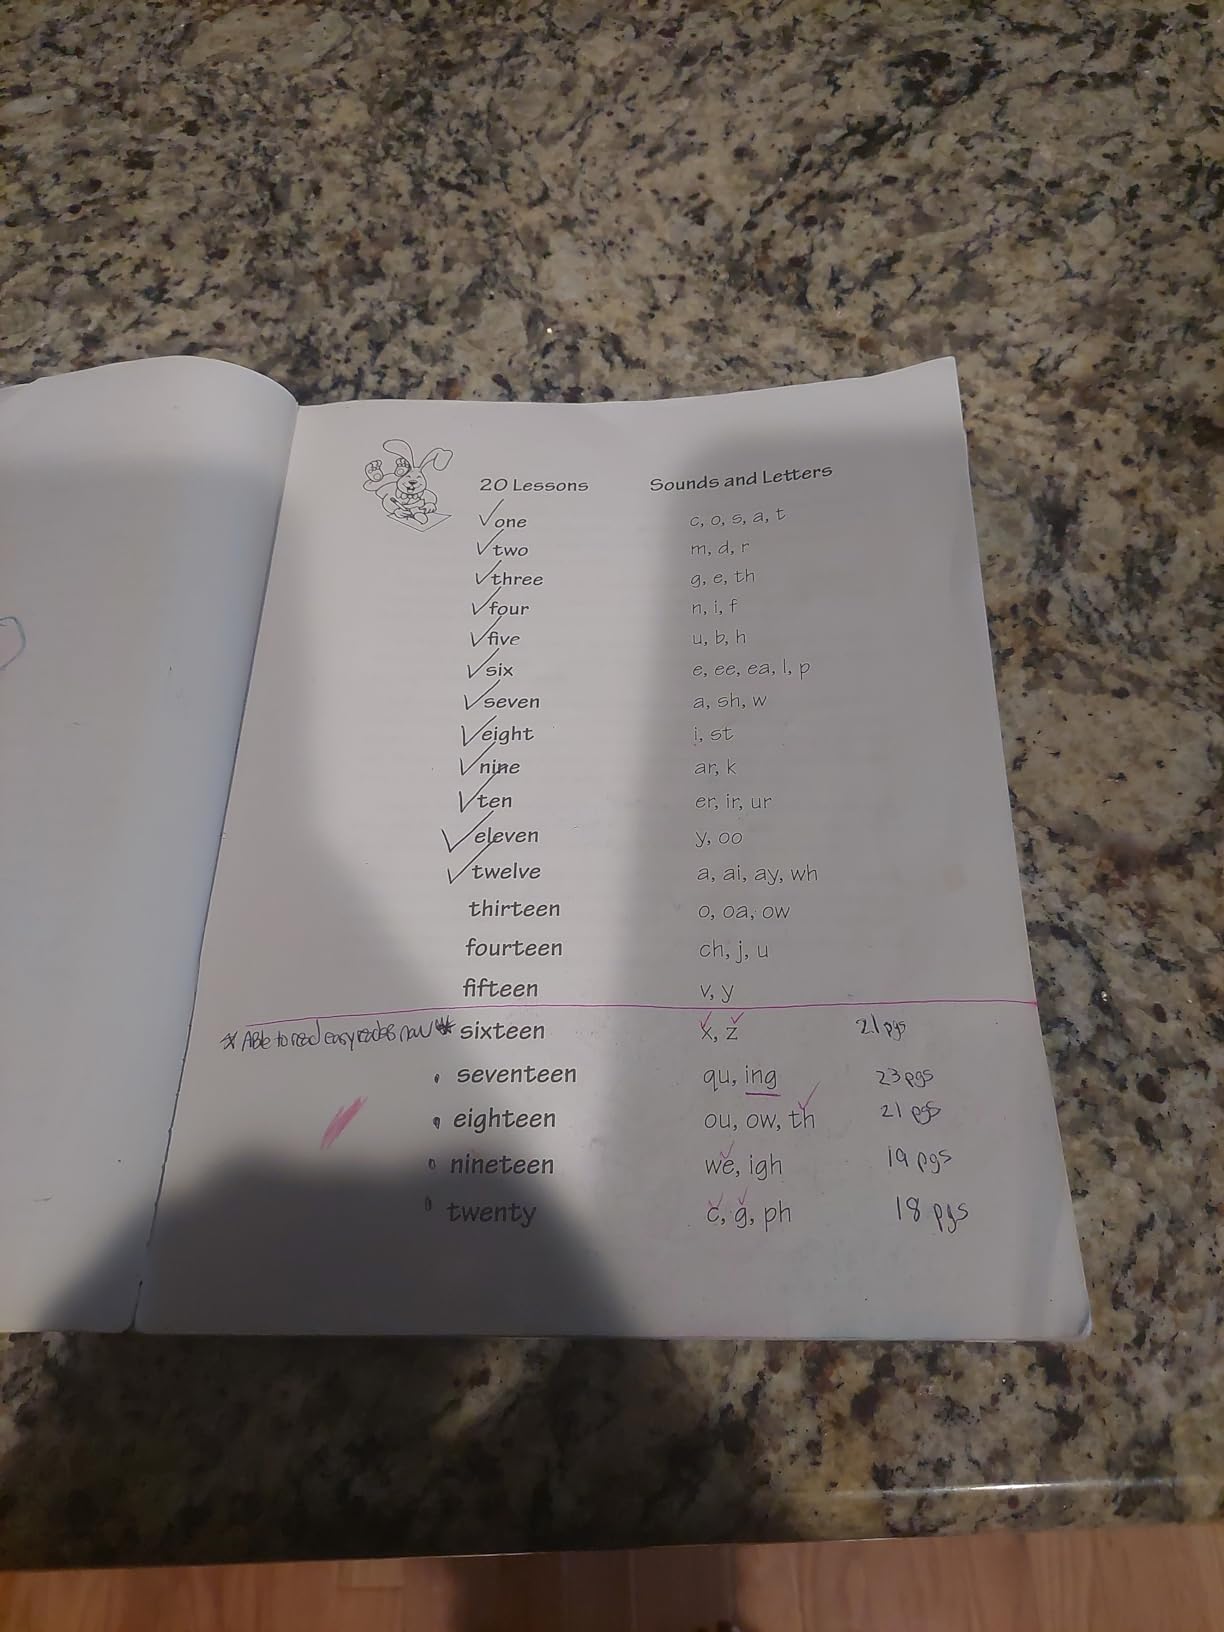 20 Lessons Sounds and Letters
one c, o, s, a, t
two m, d, r
three g, e, th
four n, i, f
five u, b, h
six e, ee, ea, l, p
seven a, sh, w
eight i, st
nine ar, k
ten er, ir, ur
eleven y, oo
twelve a, ai, ay, wh
thirteen o, oa, ow
fourteen ch, j, u
fifteen v, y
* Able to read easy readers now * sixteen x, z 21 pgs
seventeen qu, ing 23 pgs
eighteen ou, ow, th 21 pgs
nineteen we, igh 19 pgs
twenty c, g, ph 18 pgs